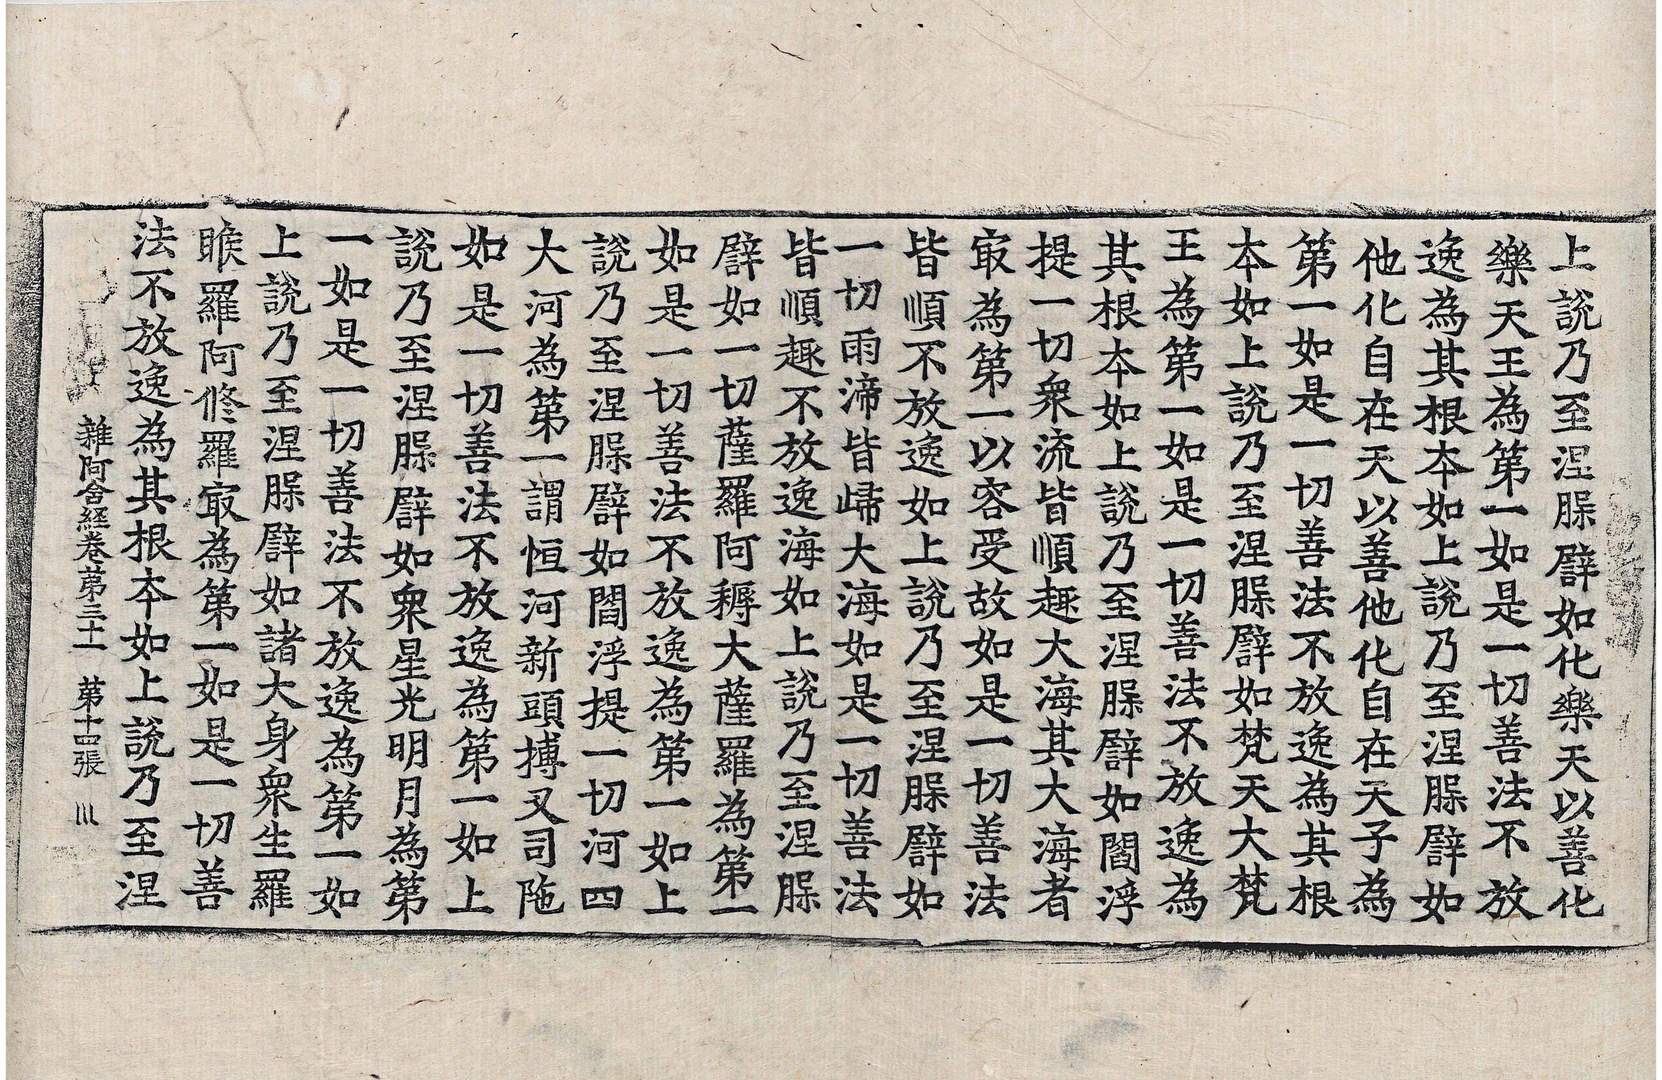 上說乃至涅槃譬如化樂天以善化
樂天王為第一如是一切善法不放
逸為其根夲如上說乃至涅槃譬如
他化自在天以善他化自在天子為
第一如是一切善法不放逸為其根
夲如上說乃至涅槃譬如梵天大梵
王為第一如是一切善法不放逸為
其根夲如上說乃至涅槃譬如閻浮
提一切衆流皆順趣大海其大海者
㝡為第一以容受故如是一切善法
皆順不放逸如上說乃至涅槃譬如
一切雨渧皆歸大海如是一切善法
皆順趣不放逸海如上說乃至涅槃
譬如一切薩羅阿耨大薩羅為第一
如是一切善法不放逸為第一如上
說乃至涅槃譬如閻浮提一切河四
大河為第一謂恒河新頭搏叉司陁
如是一切善法不放逸為第一如上
說乃至涅槃譬如衆星光明月為第
一如是一切善法不放逸為第一如
上說乃至涅槃譬如諸大身衆生羅
睺羅阿修羅㝡為第一如是一切善
法不放逸為其根夲如上說乃至涅
雜阿含經卷第三十一 第十四張